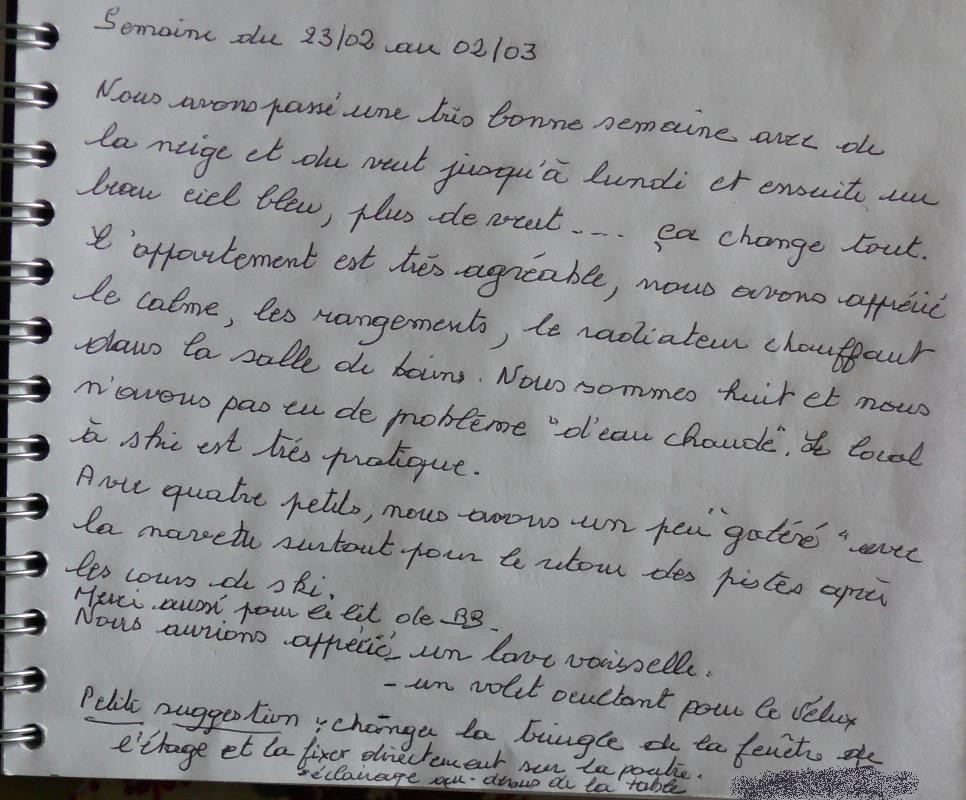 Semaine du 23/02 au 02/03
Nous avons passé une très bonne semaine avec de
la neige et du vent jusqu'à lundi et ensuite un
beau ciel bleu, plus de vent .... ça change tout.
L'appartement est très agréable, nous avons apprécié
le calme, les rangements, le radiateur chauffant
dans la salle de bains. Nous sommes huit et nous
n'avons pas eu de problème "d'eau chaude". Le local
à ski est très pratique.
Avec quatre petits, nous avons un peu "galéré" avec
la navette surtout pour le retour des pistes après
les cours de ski.
Merci aussi pour le lit de BB.
Nous aurions apprécié - un lave vaisselle.
- un volet occultant pour le Vélux
Petite suggestion : changer la tringle de la fenêtre de
l'étage et la fixer directement sur la poutre.
* éclairage au-dessus de la table